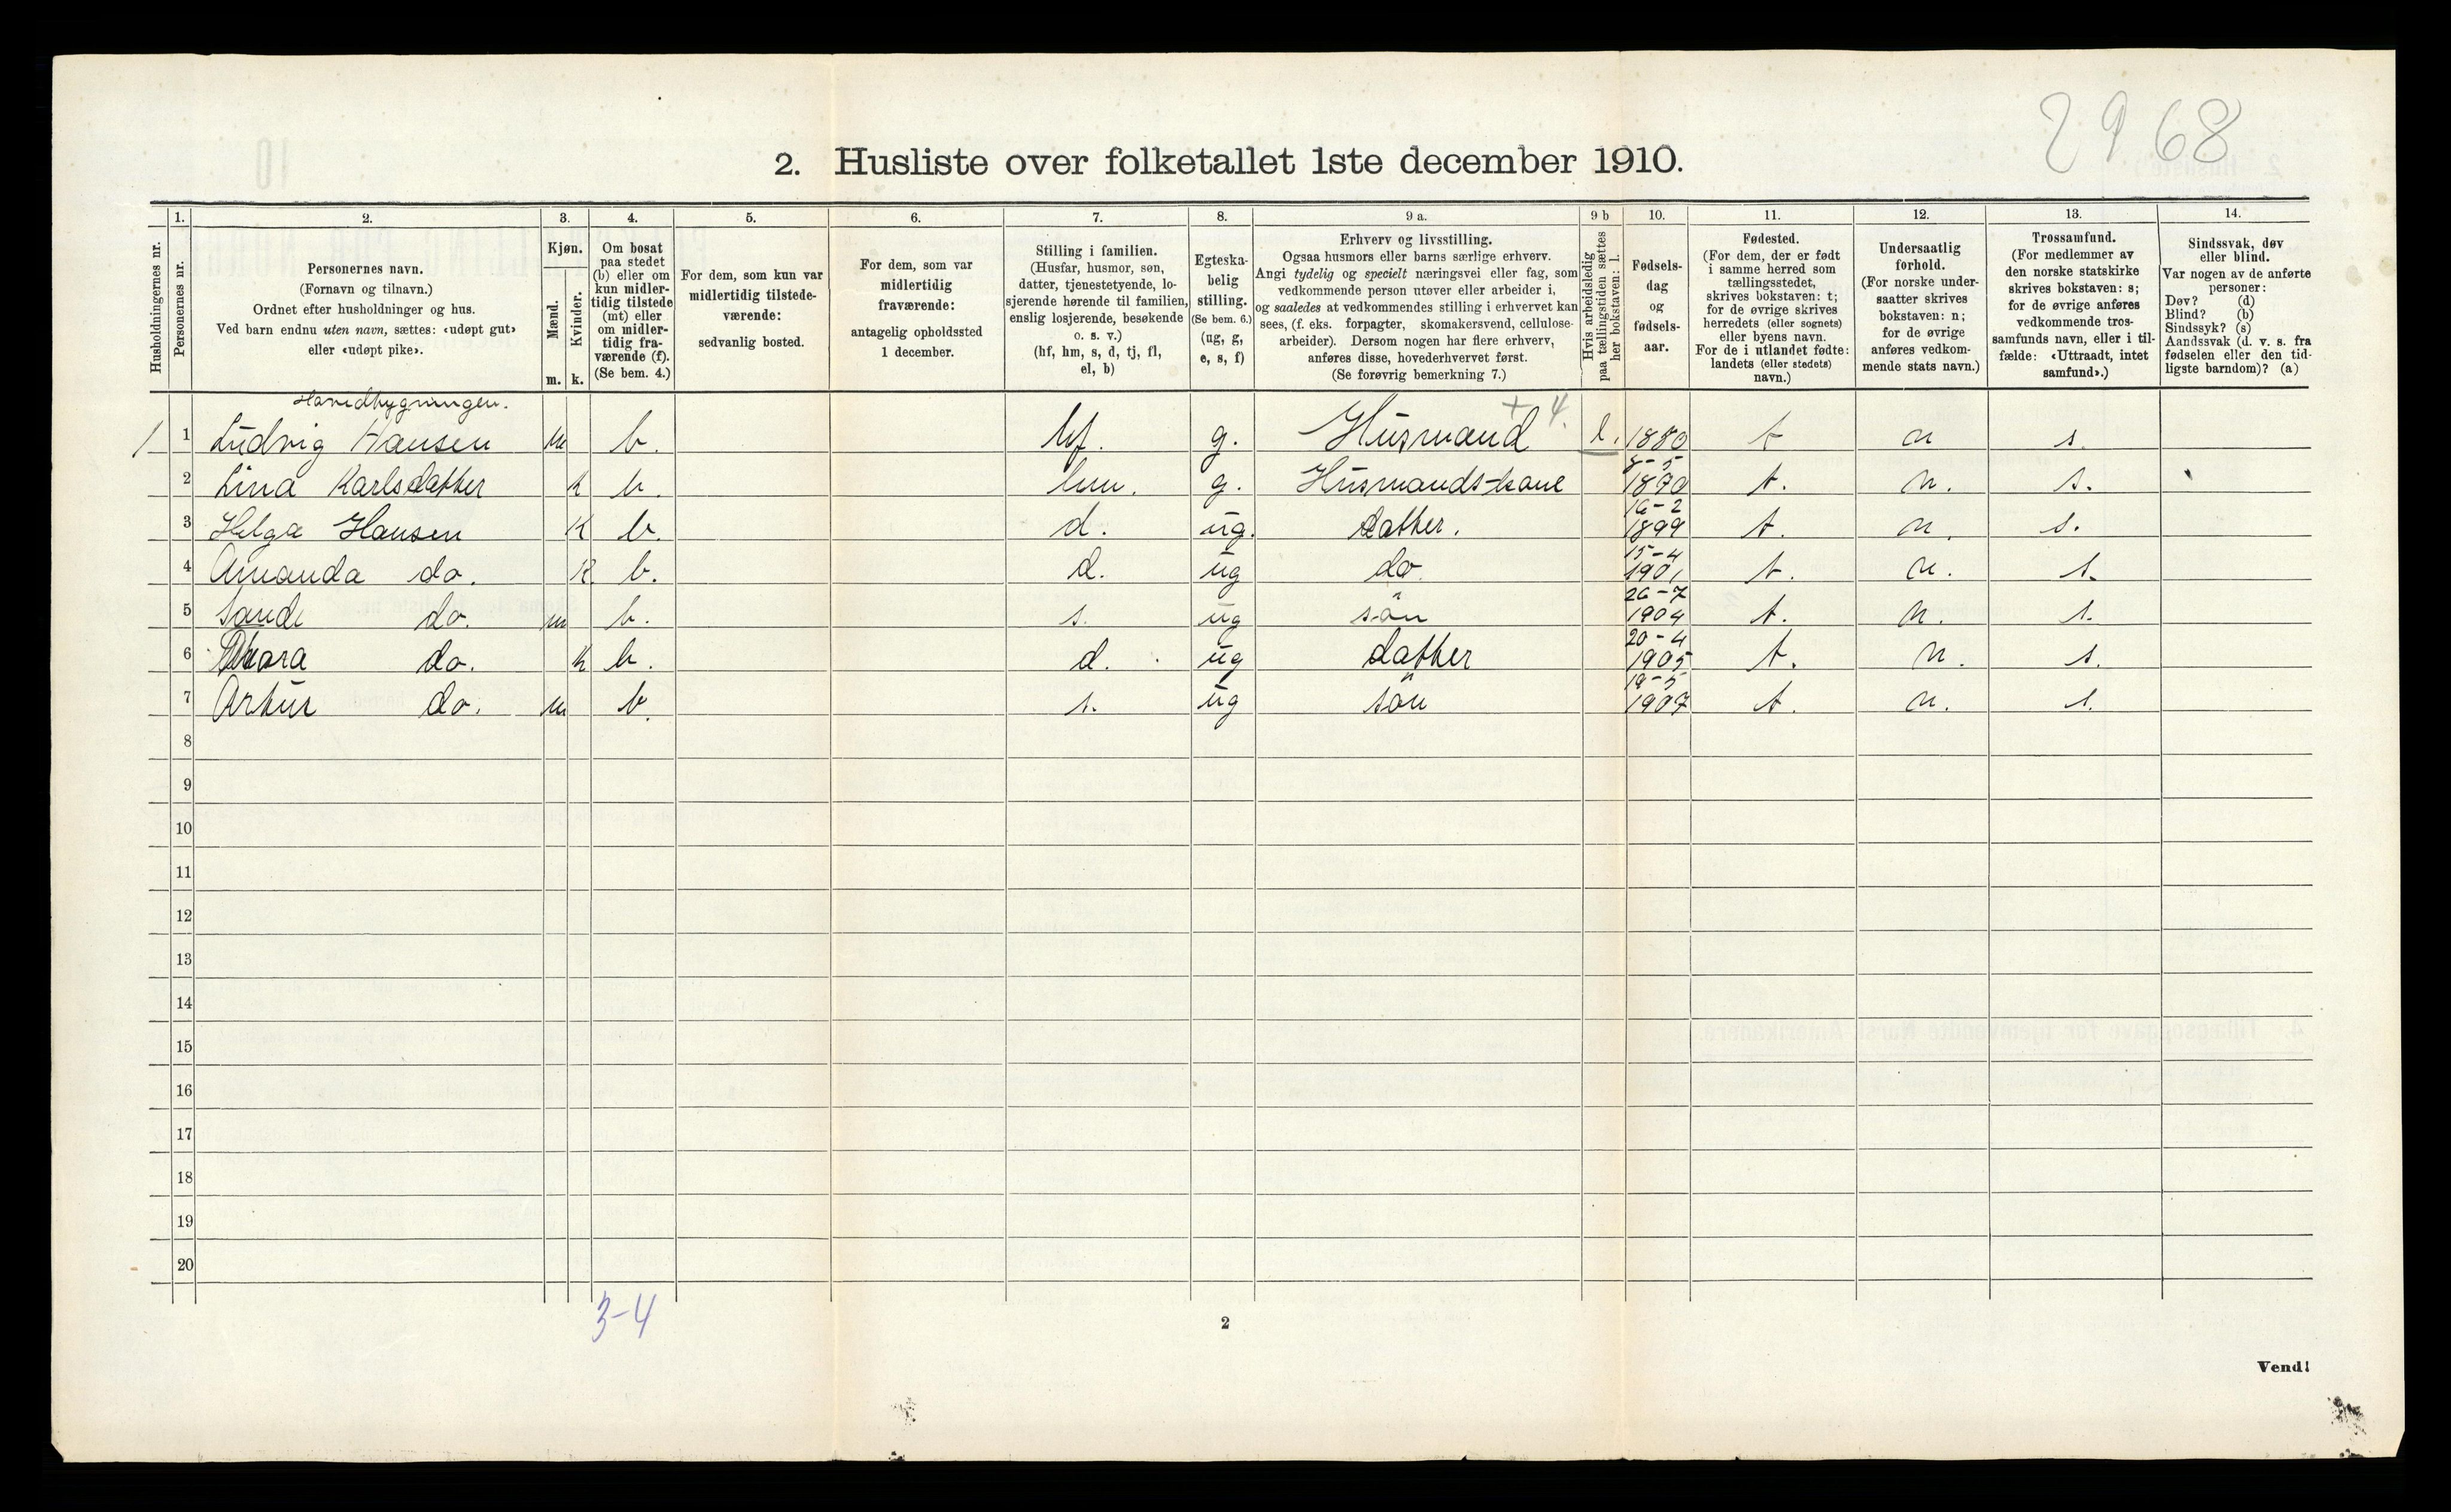 2968
2. Husliste over folketallet 1ste december 1910.
1. 2. 3. 4. 5. 6. 7. 8. 9 a. 9 b 10. 11. 12. 13. 14.
Husholdningernes nr.
Personernes nr.
Personernes navn.
(Fornavn og tilnavn.)
Ordnet efter husholdninger og hus.
Ved barn endnu uten navn, sættes: «udøpt gut»
eller «udøpt pike».
Kjøn.
Mænd.
Kvinder.
m. k.
Om bosat
paa stedet
(b) eller om
kun midler-
tidig tilstede
(mt) eller
om midler-
tidig fra-
værende (f).
(Se bem. 4.)
For dem, som kun var
midlertidig tilstede-
værende:
sedvanlig bosted.
For dem, som var
midlertidig
fraværende:
antagelig opholdssted
1 december.
Stilling i familien.
(Husfar, husmor, søn,
datter, tjenestetyende, lo-
sjerende hørende til familien,
enslig losjerende, besøkende
o. s. v.)
(hf, hm, s, d, tj, fl,
el, b)
Egteska-
belig
stilling.
(Se bem. 6.)
(ug, g,
e, s, f)
Erhverv og livsstilling.
Ogsaa husmors eller barns særlige erhverv.
Angi tydelig og specielt næringsvei eller fag, som
vedkommende person utøver eller arbeider i,
og saaledes at vedkommendes stilling i erhvervet kan
sees, (f. eks. forpagter, skomakersvend, cellulose-
arbeider). Dersom nogen har flere erhverv,
anføres disse, hovederhvervet først.
(Se forøvrig bemerkning 7.)
Hvis arbeidsledig
paa tællingstiden sættes
her bokstaven: l.
Fødsels-
dag
og
fødsels-
aar.
Fødested.
(For dem, der er født
i samme herred som
tællingsstedet,
skrives bokstaven: t;
for de øvrige skrives
herredets (eller sognets)
eller byens navn.
For de i utlandet fødte:
landets (eller stedets)
navn.)
Undersaatlig
forhold.
(For norske under-
saatter skrives
bokstaven: n;
for de øvrige
anføres vedkom-
mende stats navn.)
Trossamfund.
(For medlemmer av
den norske statskirke
skrives bokstaven: s;
for de øvrige anføres
vedkommende tros-
samfunds navn, eller i til-
fælde: «Uttraadt, intet
samfund».)
Sindssvak, døv
eller blind.
Var nogen av de anførte
personer:
Døv? (d)
Blind? (b)
Sindssyk? (s)
Aandssvak (d. v. s. fra
fødselen eller den tid-
ligste barndom)? (a)
Hovedbygningen.
1 1 Ludvig Hansen m b. hf. g. Husmand + 4. l. 1880 t n s.
2 Lina Karlsdatter k b. hm. g. Husmandskone 8-5 1870 t. n. s.
3 Helga Hansen K b. d. ug. datter. 16-2 1899 t. n. s.
4 Amanda do. K b. d. ug do 15-4 1901 t. n. s.
5 do. m b. s. ug sön 26-7 1904 t. n. s.
6 do. k b. d. ug datter 20-4 1905 t. n. s.
7 Artur do. m b. s. ug sön 19-5 1907 t. n. s.
8
9
10
11
12
13
14
15
16
17
18
19
20
3-4
2
Vend!